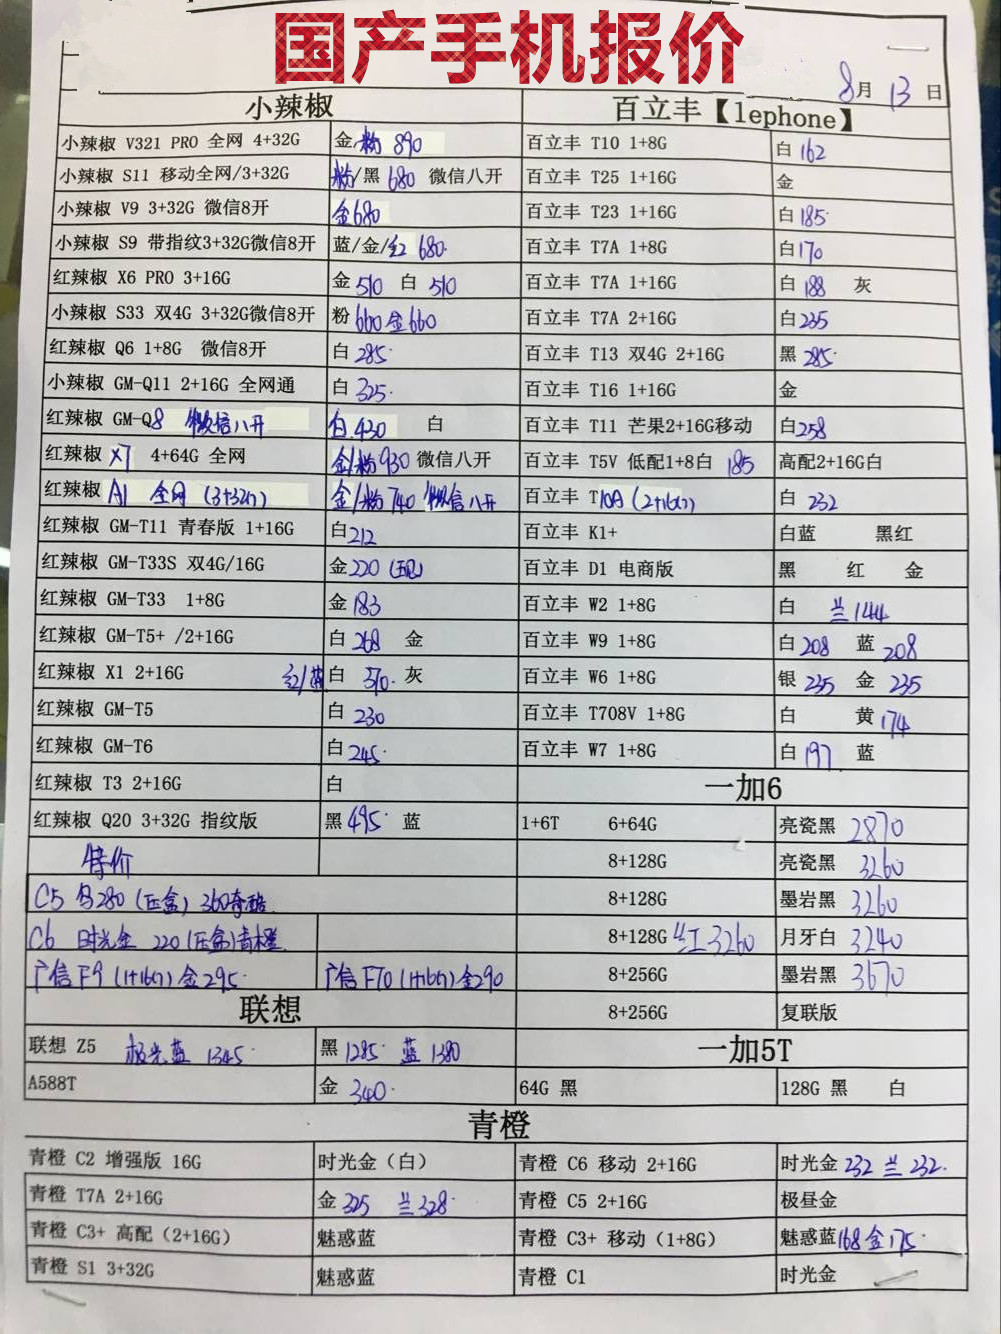 国产手机报价
8月 13 日
小辣椒 百立丰【lephone】
小辣椒 V321 PRO 全网 4+32G 金/粉 890 百立丰 T10 1+8G 白 162
小辣椒 S11 移动全网/3+32G 粉/黑 680 微信八开 百立丰 T25 1+16G 金
小辣椒 V9 3+32G 微信8开 金680 百立丰 T23 1+16G 白185
小辣椒 S9 带指纹3+32G微信8开 蓝/金/红 680 百立丰 T7A 1+8G 白170
红辣椒 X6 PRO 3+16G 金 510 白 510 百立丰 T7A 1+16G 白 188 灰
小辣椒 S33 双4G 3+32G微信8开 粉 660 金660 百立丰 T7A 2+16G 白235
红辣椒 Q6 1+8G 微信8开 白 285 百立丰 T13 双4G 2+16G 黑 285
小辣椒 GM-Q11 2+16G 全网通 白 325 百立丰 T16 1+16G 金
红辣椒 GM-Q8 微信八开 白 430 白 百立丰 T11 芒果2+16G移动 白258
红辣椒 X7 4+64G 全网 金/粉 930 微信八开 百立丰 T5V 低配1+8白 185 高配2+16G白
红辣椒 A1 全网 (3+32G) 金/粉 740 微信八开 百立丰 T10A (2+16G) 白 232
红辣椒 GM-T11 青春版 1+16G 白212 百立丰 K1+ 白蓝 黑红
红辣椒 GM-T33S 双4G/16G 金220 百立丰 D1 电商版 黑 红 金
红辣椒 GM-T33 1+8G 金 183 百立丰 W2 1+8G 白 兰144
红辣椒 GM-T5+ /2+16G 白 268 金 百立丰 W9 1+8G 白208 蓝 208
红辣椒 X1 2+16G 红/蓝 白 370 灰 百立丰 W6 1+8G 银 235 金 235
红辣椒 GM-T5 白 230 百立丰 T708V 1+8G 白 黄174
红辣椒 GM-T6 白245 百立丰 W7 1+8G 白 197 蓝
红辣椒 T3 2+16G 白 一加6
红辣椒 Q20 3+32G 指纹版 黑 495 蓝 1+6T 6+64G 亮瓷黑 2870
特价 8+128G 亮瓷黑 3260
C5 280 (压盒) 360奇酷 8+128G 墨岩黑 3260
C6 时光金 220 (压盒)青橙 8+128G 红3260 月牙白 3240
广信F9 (1+16G) 金295 广信F70 (1+16G) 金290 8+256G 墨岩黑 3670
联想 8+256G 复联版
联想 Z5 极光蓝 1345 黑 1285 蓝 1380 一加5T
A588T 金 340 64G 黑 128G 黑 白
青橙
青橙 C2 增强版 16G 时光金（白） 青橙 C6 移动 2+16G 时光金 232 兰 232
青橙 T7A 2+16G 金 325 兰328 青橙 C5 2+16G 极昼金
青橙 C3+ 高配（2+16G） 魅惑蓝 青橙 C3+ 移动（1+8G） 魅惑蓝168 金175
青橙 S1 3+32G 魅惑蓝 青橙 C1 时光金